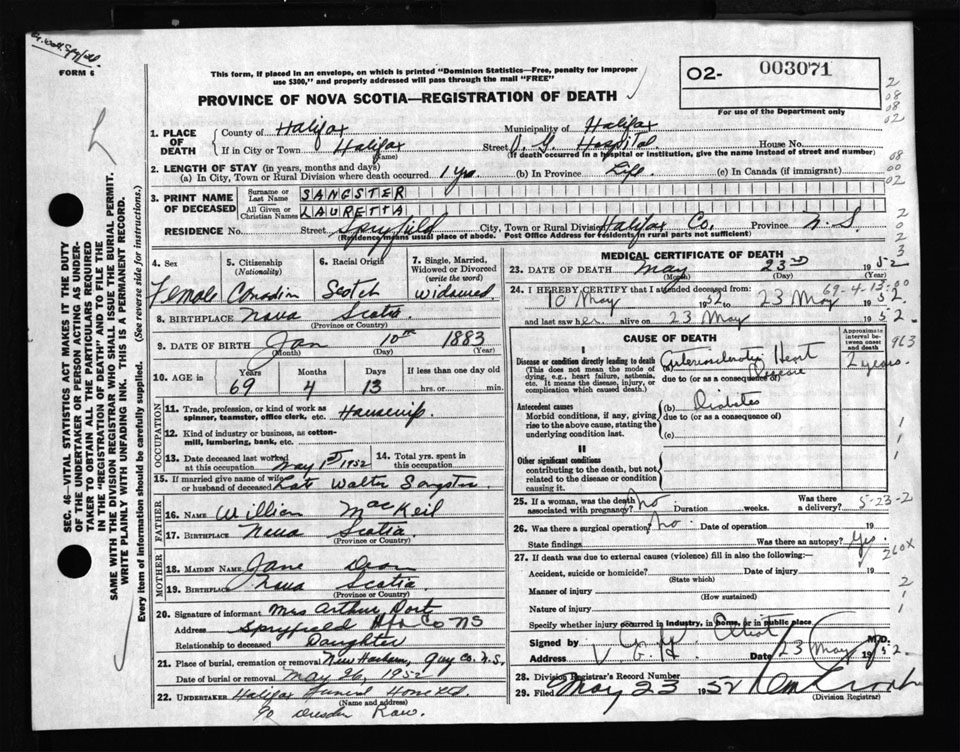 FORM 6
This form, if placed in an envelope, on which is printed "Dominion Statistics—Free, penalty for improper
use $300," and properly addressed will pass through the mail "FREE"
02- 003071
For use of the Department only
PROVINCE OF NOVA SCOTIA—REGISTRATION OF DEATH
1. PLACE OF DEATH
County of Halifax Municipality of Halifax
If in City or Town Halifax (Name) Street V. G. Hospital House No.
(If death occurred in a hospital or institution, give the name instead of street and number)
2. LENGTH OF STAY (in years, months and days)
(a) In City, Town or Rural Division where death occurred 1 yr. (b) In Province Life (c) In Canada (if immigrant)
3. PRINT NAME OF DECEASED
Surname or Last Name SANGSTER
All Given or Christian Names LAURETTA
RESIDENCE No. Street Spryfield City, Town or Rural Division Halifax Co. N.S.
(Residence means usual place of abode. Post Office Address for residents in rural parts not sufficient)
4. Sex Female
5. Citizenship (Nationality) Canadian
6. Racial Origin Scotch
7. Single, Married, Widowed or Divorced (write the word) Widowed
8. BIRTHPLACE Nova Scotia
(Province or Country)
9. DATE OF BIRTH Jan 10th 1883
(Month) (Day) (Year)
10. AGE in Years 69 Months 4 Days 13 If less than one day old hrs. or min.
OCCUPATION
11. Trade, profession, or kind of work as spinner, teamster, office clerk, etc. Housewife
12. Kind of industry or business, as cotton-mill, lumbering, bank, etc.
13. Date deceased last worked at this occupation May 1st 1952
14. Total yrs. spent in this occupation
15. If married give name of wife or husband of deceased Late Walter Sangster
FATHER
16. NAME William MacKeil
17. BIRTHPLACE Nova Scotia
(Province or Country)
MOTHER
18. MAIDEN NAME Jane
19. BIRTHPLACE Nova Scotia
(Province or Country)
20. Signature of informant Mrs Arthur Dort
Address Spryfield Hfx Co NS
Relationship to deceased Daughter
21. Place of burial, cremation or removal New Harbour, Guy Co. N.S.
Date of burial or removal May 26, 1952
22. UNDERTAKER Halifax Funeral Home Ltd
(Name and address)
90 Row.
MEDICAL CERTIFICATE OF DEATH
23. DATE OF DEATH May 23rd 1952
(Month) (Day) (Year)
69-4-13
24. I HEREBY CERTIFY that I attended deceased from:
10 May 1952 to 23 May 1952
and last saw her alive on 23 May 1952.
CAUSE OF DEATH
Approximate interval between onset and death
963
I
Disease or condition directly leading to death
(This does not mean the mode of dying, e.g., heart failure, asthenia, etc. It means the disease, injury, or complication which caused death.)
(a) Arteriosclerotic Heart Disease 2 years.
due to (or as a consequence of)
Antecedent causes
Morbid conditions, if any, giving rise to the above cause, stating the underlying condition last.
(b) Diabetes
due to (or as a consequence of)
(c)
II
Other significant conditions
contributing to the death, but not related to the disease or condition causing it.
25. If a woman, was the death associated with pregnancy? No. Duration weeks. Was there a delivery?
5-23-2
26. Was there a surgical operation? No. Date of operation 19
State findings Was there an autopsy? Yes.
260X
27. If death was due to external causes (violence) fill in also the following:—
Accident, suicide or homicide? Date of injury 19
(State which)
Manner of injury
(How sustained)
Nature of injury
Specify whether injury occurred in industry, in home, or in public place
Signed by M.D.
Address V.G.H. Date 23 May 1952.
28. Division Registrar's Record Number
29. Filed May 23 1952
(Division Registrar)
SEC. 46—VITAL STATISTICS ACT MAKES IT THE DUTY
OF THE UNDERTAKER OR PERSON ACTING AS UNDERTAKER
TO OBTAIN ALL THE PARTICULARS REQUIRED
IN THE "REGISTRATION OF DEATH" AND TO FILE THE
SAME WITH THE DIVISION REGISTRAR WHO SHALL ISSUE THE BURIAL PERMIT.
WRITE PLAINLY WITH UNFADING INK. THIS IS A PERMANENT RECORD.
Every item of information should be carefully supplied. (See reverse side for instructions.)